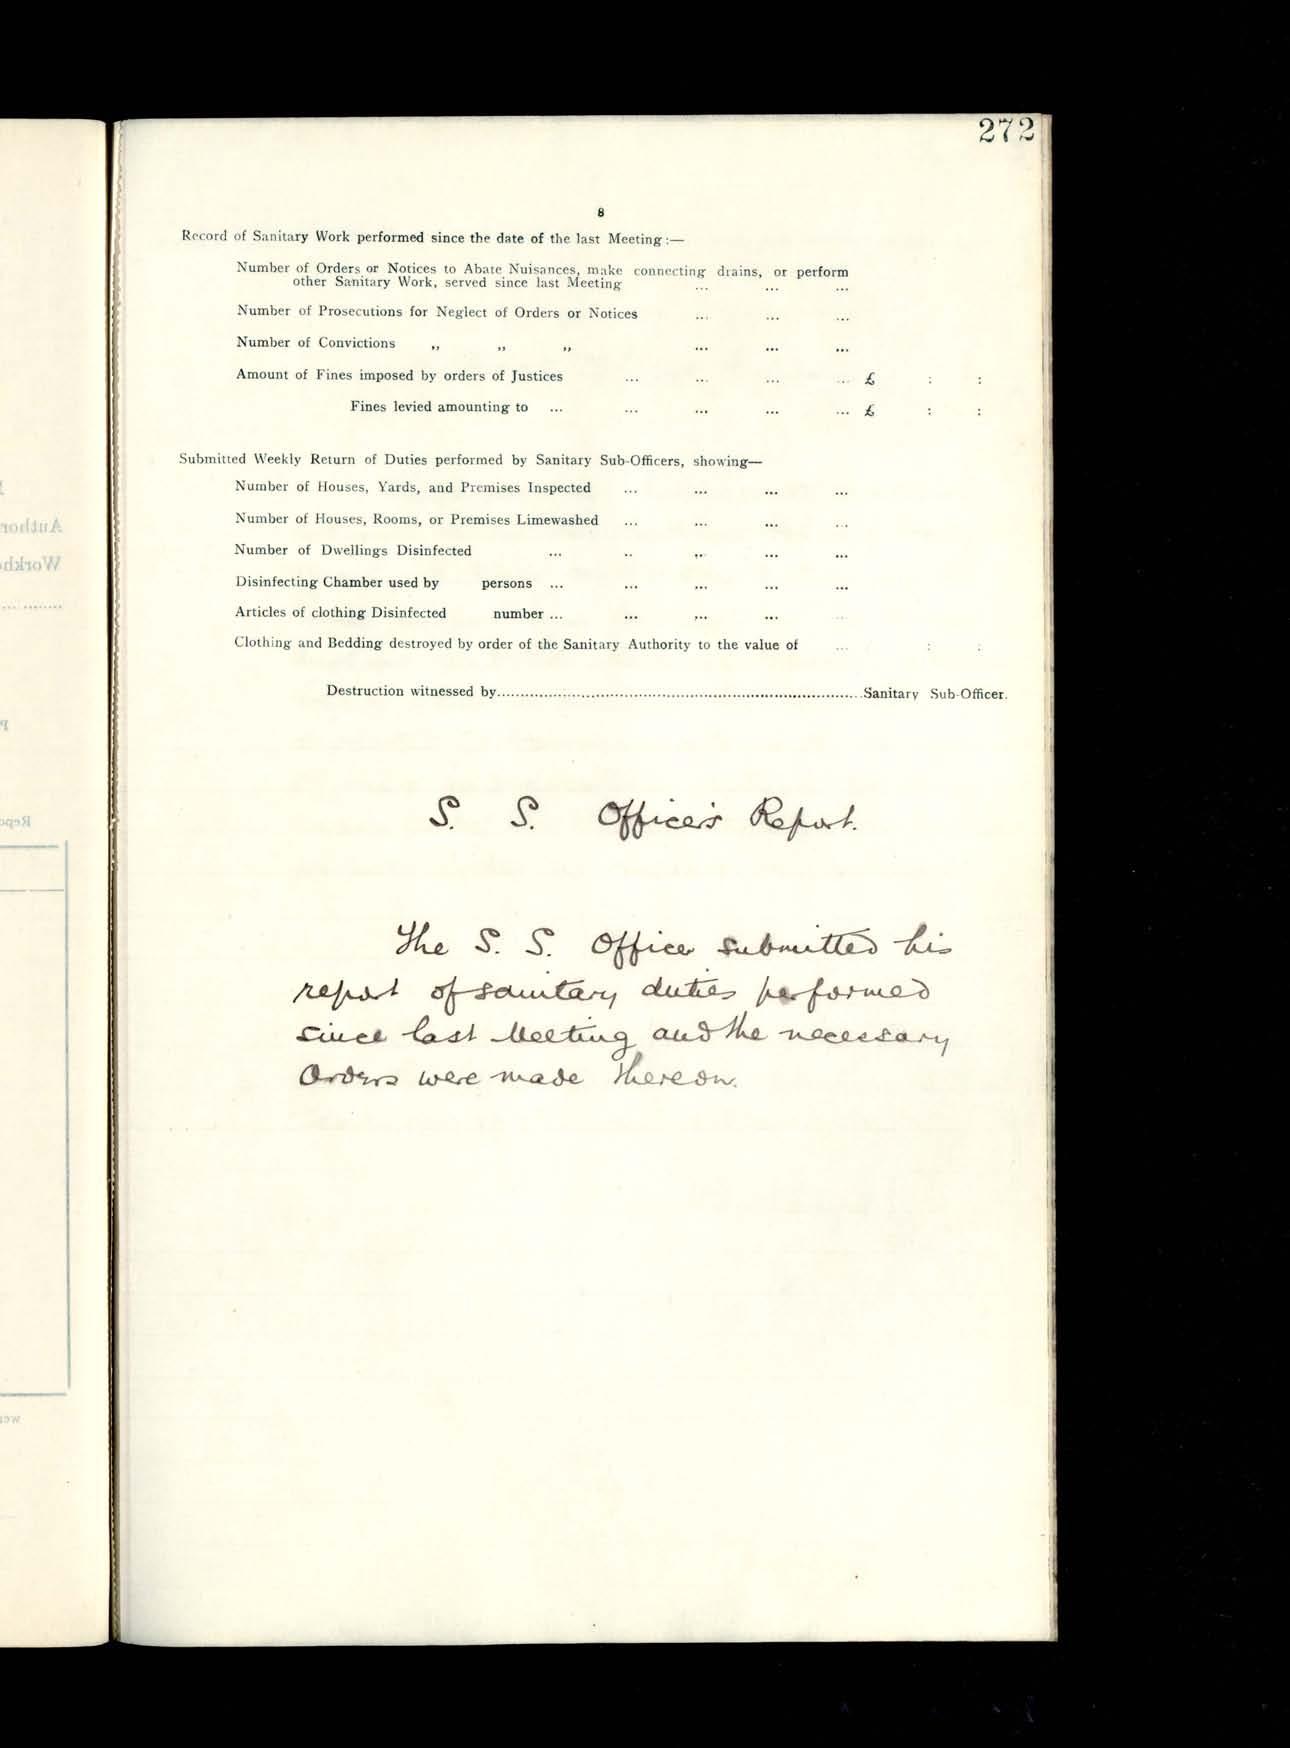 272
8
Record of Sanitary Work performed since the date of the last Meeting :—
Number of Orders or Notices to Abate Nuisances, make connecting drains, or perform
other Sanitary Work, served since last Meeting ... ... ...
Number of Prosecutions for Neglect of Orders or Notices ... ... ...
Number of Convictions „ „ „ ... ... ...
Amount of Fines imposed by orders of Justices ... ... ... ... £ : :
Fines levied amounting to ... ... ... ... ... £ : :
Submitted Weekly Return of Duties performed by Sanitary Sub-Officers, showing—
Number of Houses, Yards, and Premises Inspected ... ... ... ...
Number of Houses, Rooms, or Premises Limewashed ... ... ... ...
Number of Dwellings Disinfected ... ... ... ... ...
Disinfecting Chamber used by persons ... ... ... ... ...
Articles of clothing Disinfected number ... ... ... ... ...
Clothing and Bedding destroyed by order of the Sanitary Authority to the value of ... : :
Destruction witnessed by..............................Sanitary Sub-Officer.
S. S. Officer's Report.
The S. S. Officer submitted his
report of sanitary duties performed
since last Meeting and the necessary
Orders were made thereon.